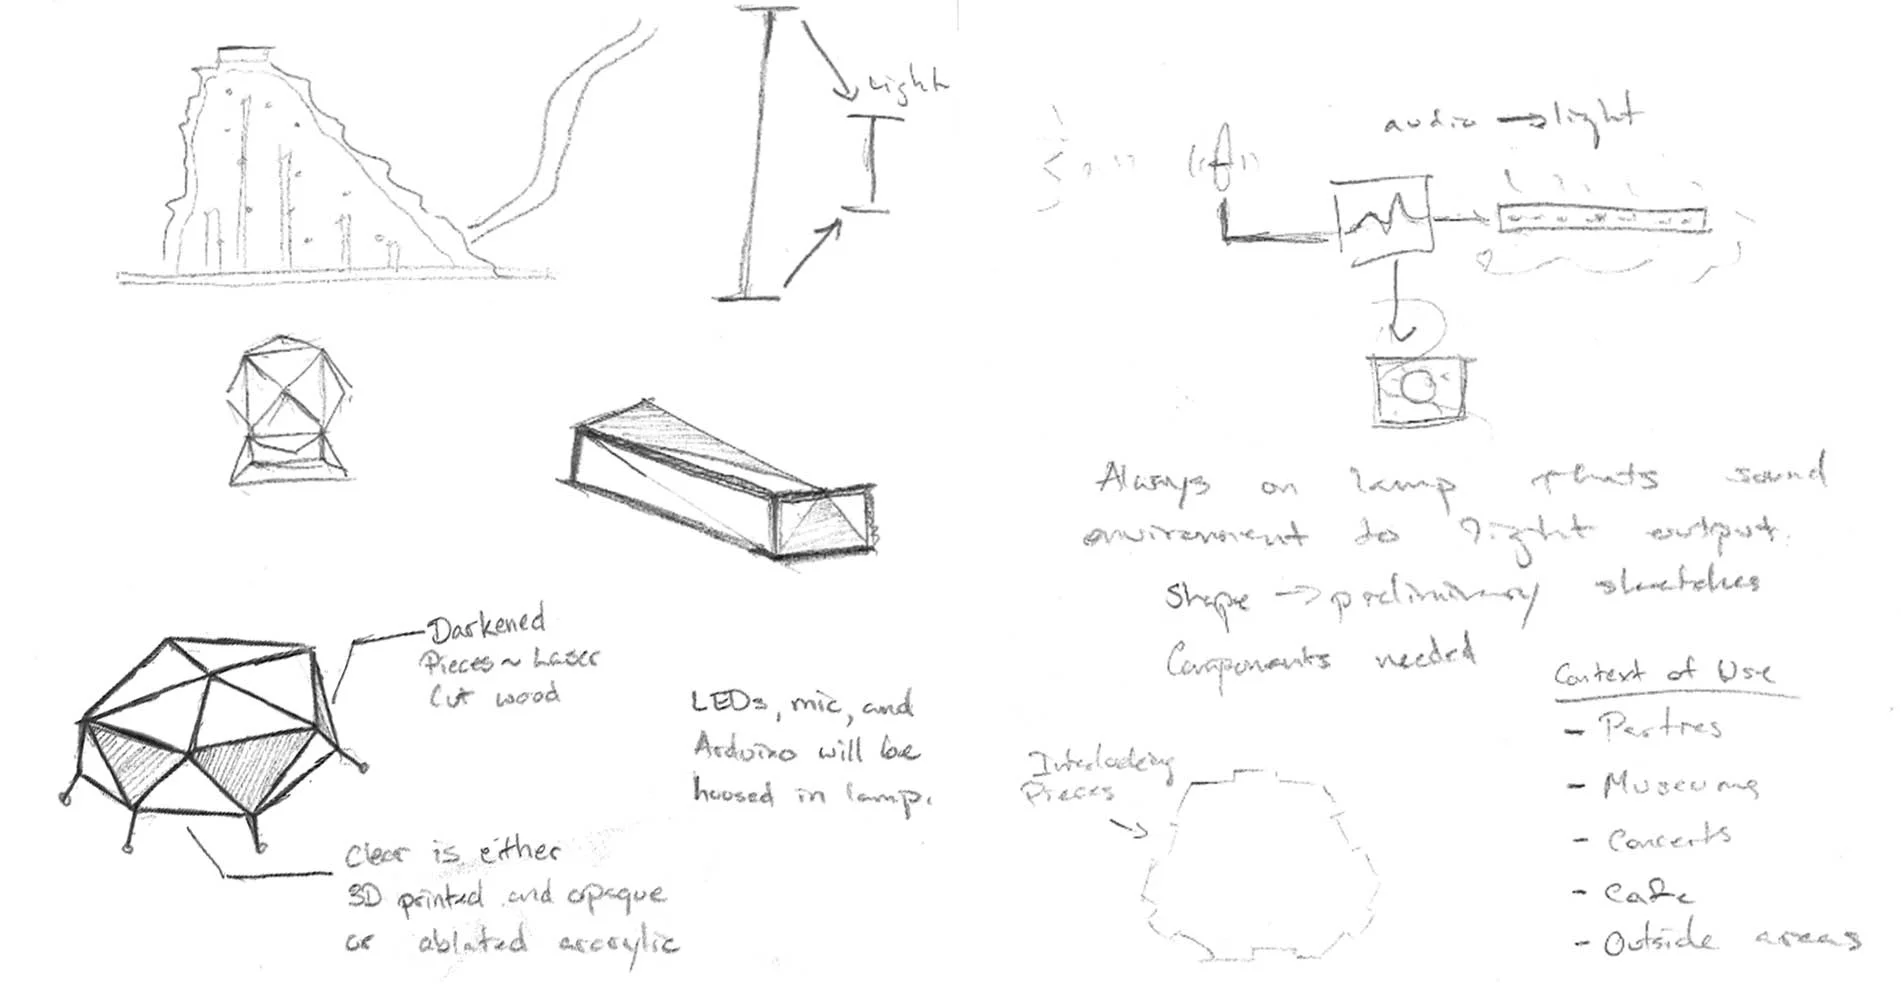 Light
Darkened
Pieces ~ Laser
Cut wood
LEDs, mic, and
Arduino will be
housed in lamp.
Clear is either
3D printed and opaque
or ablated acrylic
audio → light
Always on lamp thats sound
environment to light output.
Shape → preliminary sketches
Components needed
Interlocking
Pieces
Context of Use
- Parties
- Museums
- Concerts
- Cafe
- Outside areas